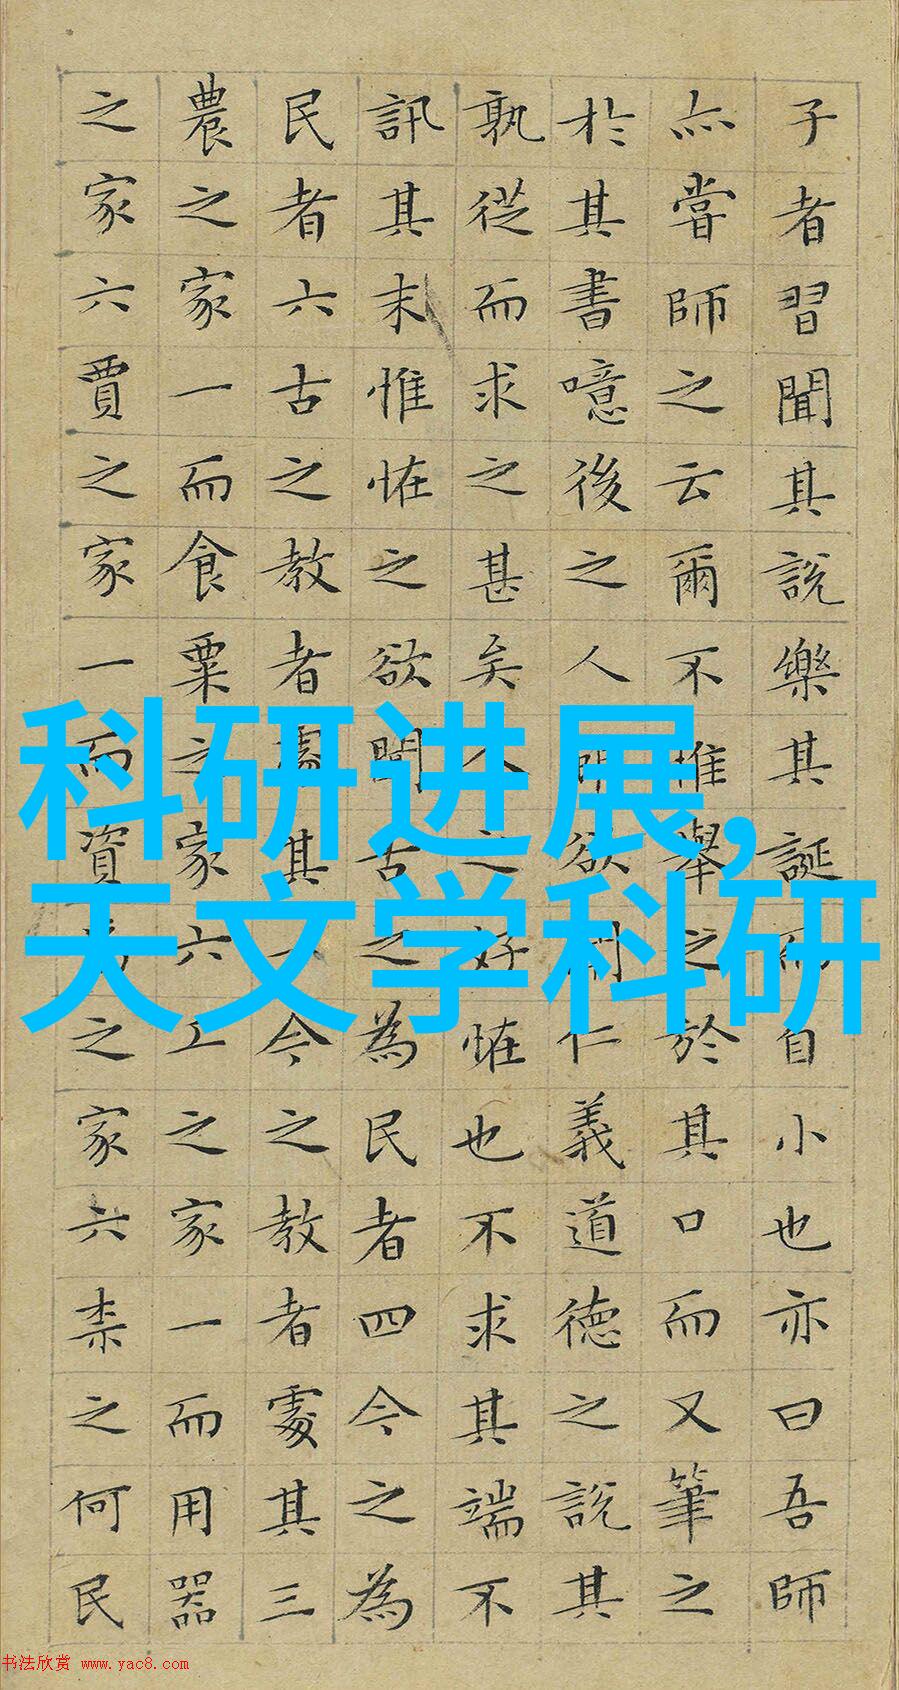 子者習聞其說樂其誕而自小也亦曰吾師
亦甞師之云爾不惟舉之於其口而又筆之
於其書噫後之人欲仁義道德之說其
孰從而求之甚矣人之好恠也不求其端不
訊其末惟恠之欲聞古之為民者四今之為
民者六古之教者處其一今之教者處其三
農之家一而食粟之家六工之家一而用器
之家六賈之家一而資焉之家六柰之何民
科研进展,
天文学科研
书法欣赏 www.yac8.com